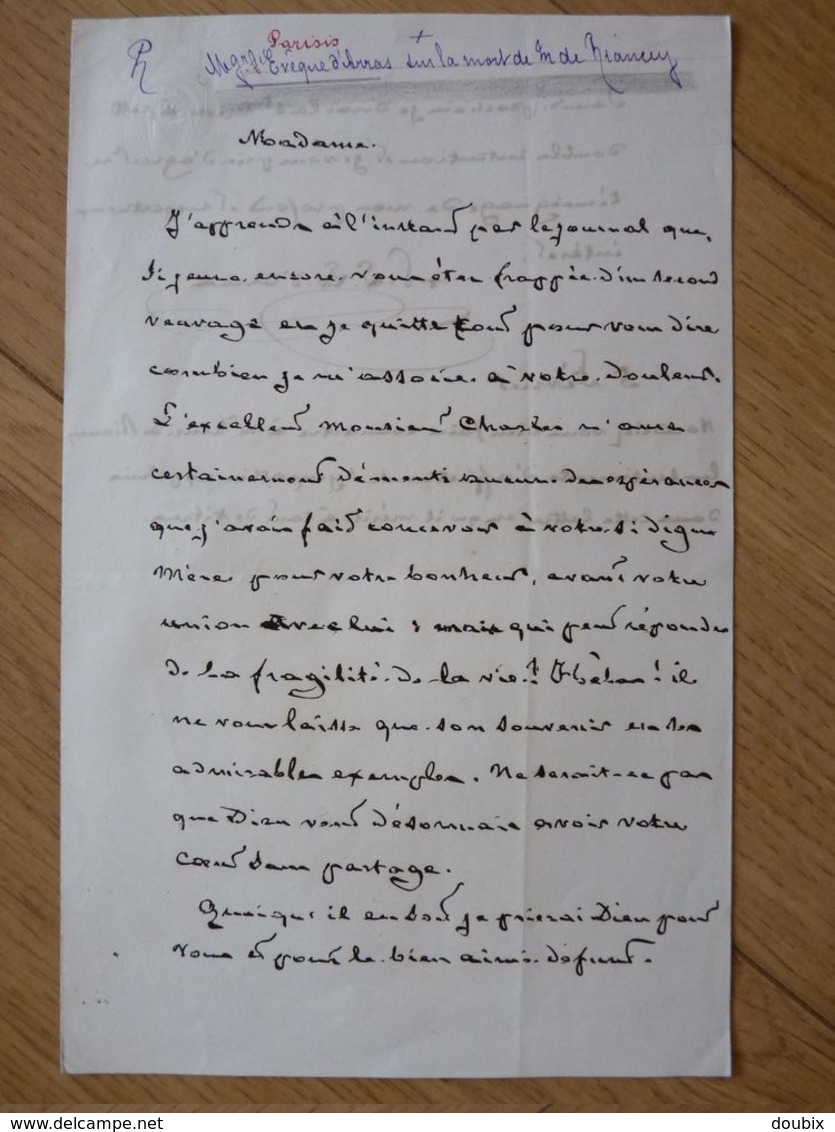 Parisis +
Mgr Evêque d'Arras sur la mort de M de Riancey
Madame.
J'apprends à l'instant par le journal que,
si jeune encore, vous êtes frappée d'un second
veuvage et je quitte tout pour vous dire
combien je m'associe à votre douleur.
L'excellent Monsieur Charles n'aura
certainement démenti aucune des espérances
que j'avais fait concevoir à votre si digne
Mère pour votre bonheur, avant votre
union avec lui ; mais qui peut répondre
de la fragilité de la vie ! Hélas ! il
ne vous laisse que son souvenir et ses
admirables exemples. Ne serait-ce pas
que Dieu veut désormais avoir votre
cœur sans partage.
Quoiqu'il en soit je prierai Dieu pour
vous et pour le bien aimé défunt.
delcampe.net
doubix